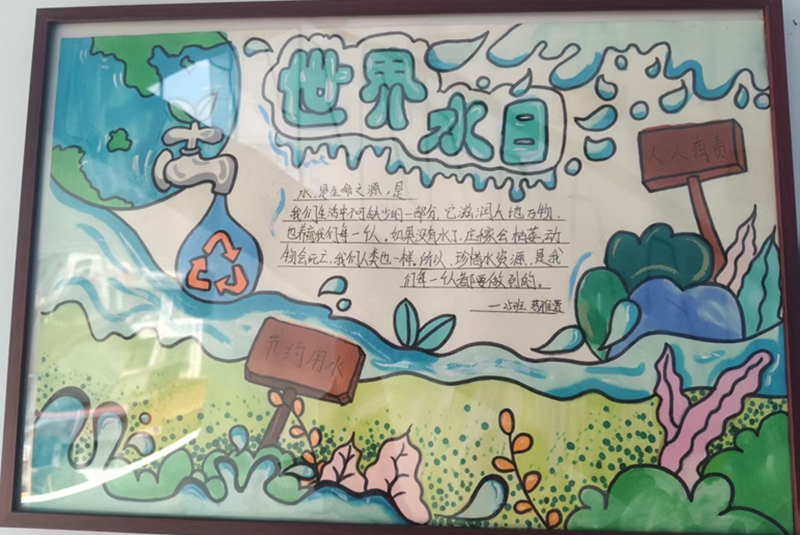 世界
水日
人人有责
水,是生命之源,是
我们生活中不可缺少的一部分,它滋润大地万物,
也养育我们每一个人,如果没有水了,庄稼会枯萎,动
物会死亡,我们人类也一样。所以,珍惜水资源,是我
们每一个人都要做到的。
—25班
节约用水